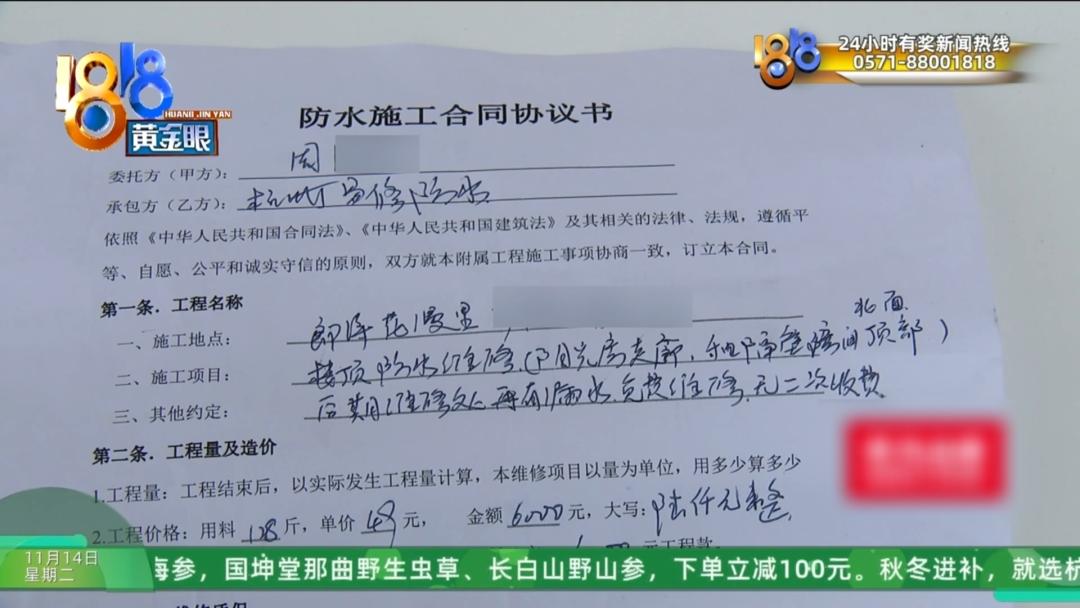 1818
HUANG JIN YAN
黄金眼
1818
24小时有奖新闻热线
0571-88001818
防水施工合同协议书
委托方（甲方）：周
承包方（乙方）：杭州 修防水
依照《中华人民共和国合同法》、《中华人民共和国建筑法》及其相关的法律、法规，遵循平
等、自愿、公平和诚实守信的原则，双方就本附属工程施工事项协商一致，订立本合同。
第一条．工程名称
一、施工地点：
北面
二、施工项目：楼顶防水维修，（阳光房走廊，和 隔壁 顶部）
三、其他约定：后期维修 再有漏水，免费维修，无二次收费
第二条．工程量及造价
1.工程量：工程结束后，以实际发生工程量计算，本维修项目以量为单位，用多少算多少
2.工程价格：用料 斤，单价 元， 金额 6000 元，大写：陆仟元整
元工程款
11月14日
星期二
海参，国坤堂那曲野生虫草、长白山野山参，下单立减100元。秋冬进补，就选杭